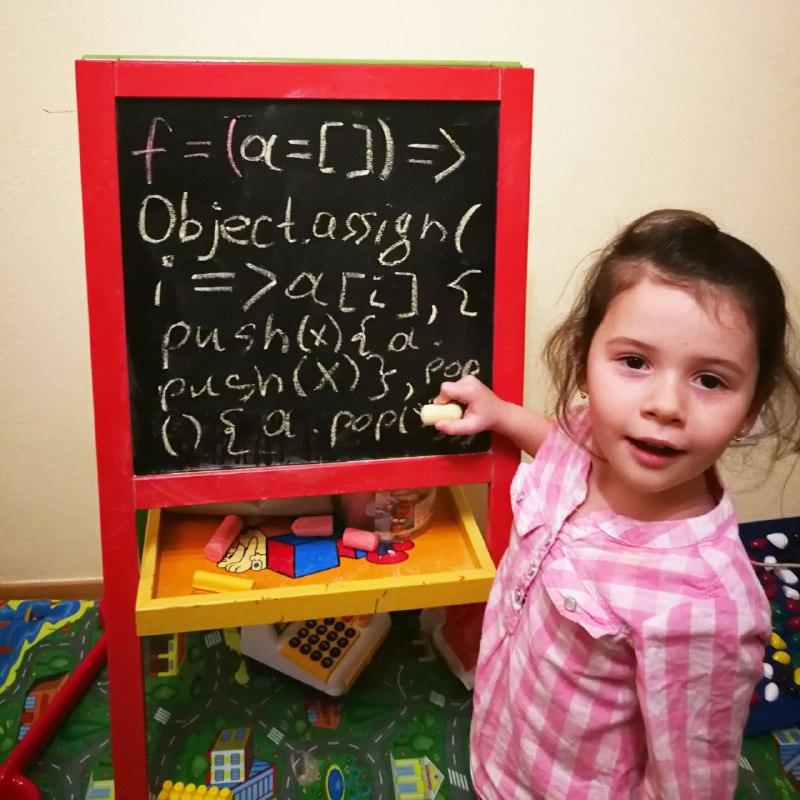 f=(a=[])=>
Object.assign(
i=>a[i],{
push(x){a.
push(x)},pop
(){a.pop(